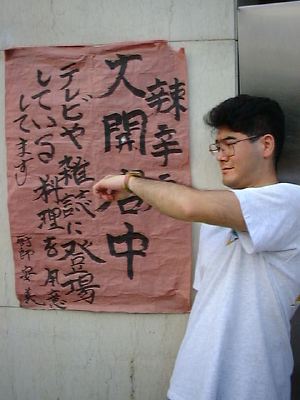 辣辛
大開店中
テレビや雑誌に登場
している料理を用意
してます
厨師